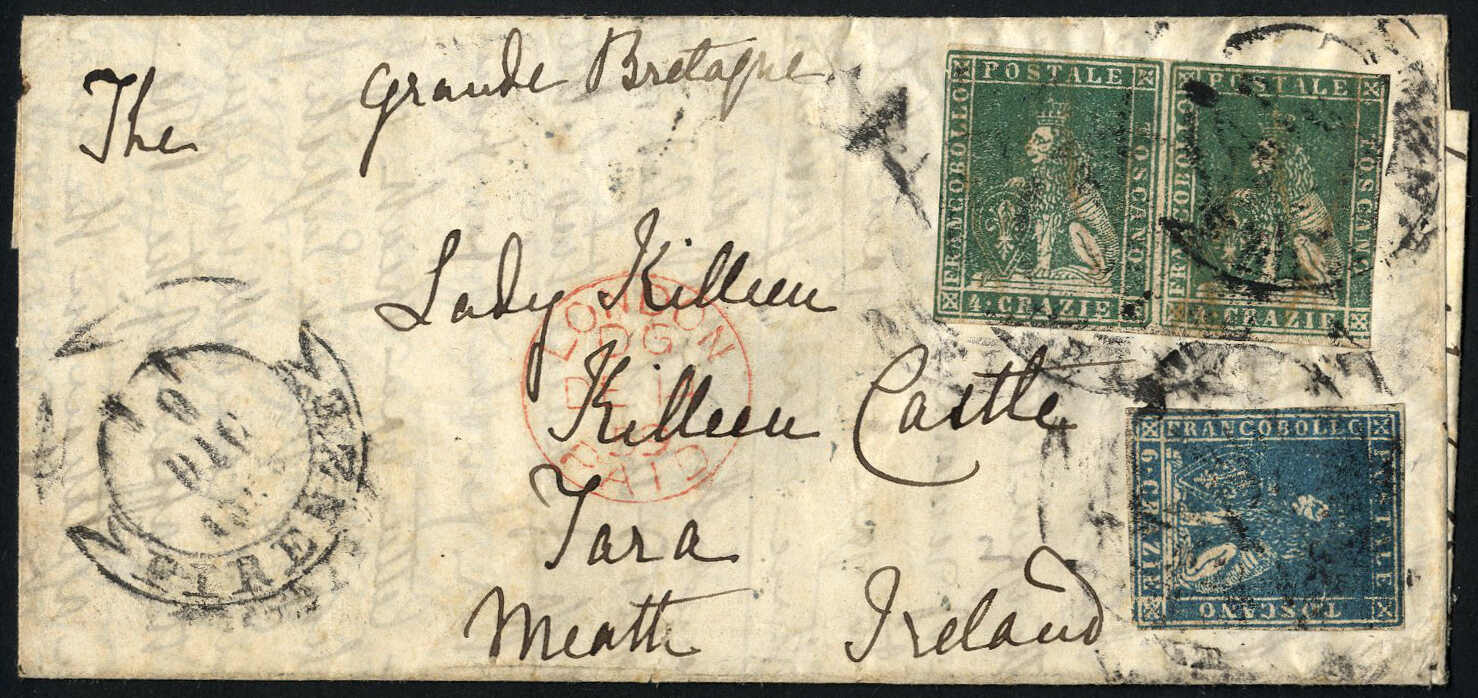 The Grande Bretagne
Lady Killeen
Killeen Castle
Tara
Meath Ireland
LONDON
DE 14
PAID
DIC
FIRENZE
FRANCOBOLLO POSTALE TOSCANO
4 · CRAZIE
FRANCOBOLLO POSTALE TOSCANO
4 · CRAZIE
FRANCOBOLLO POSTALE TOSCANO
6 · CRAZIE